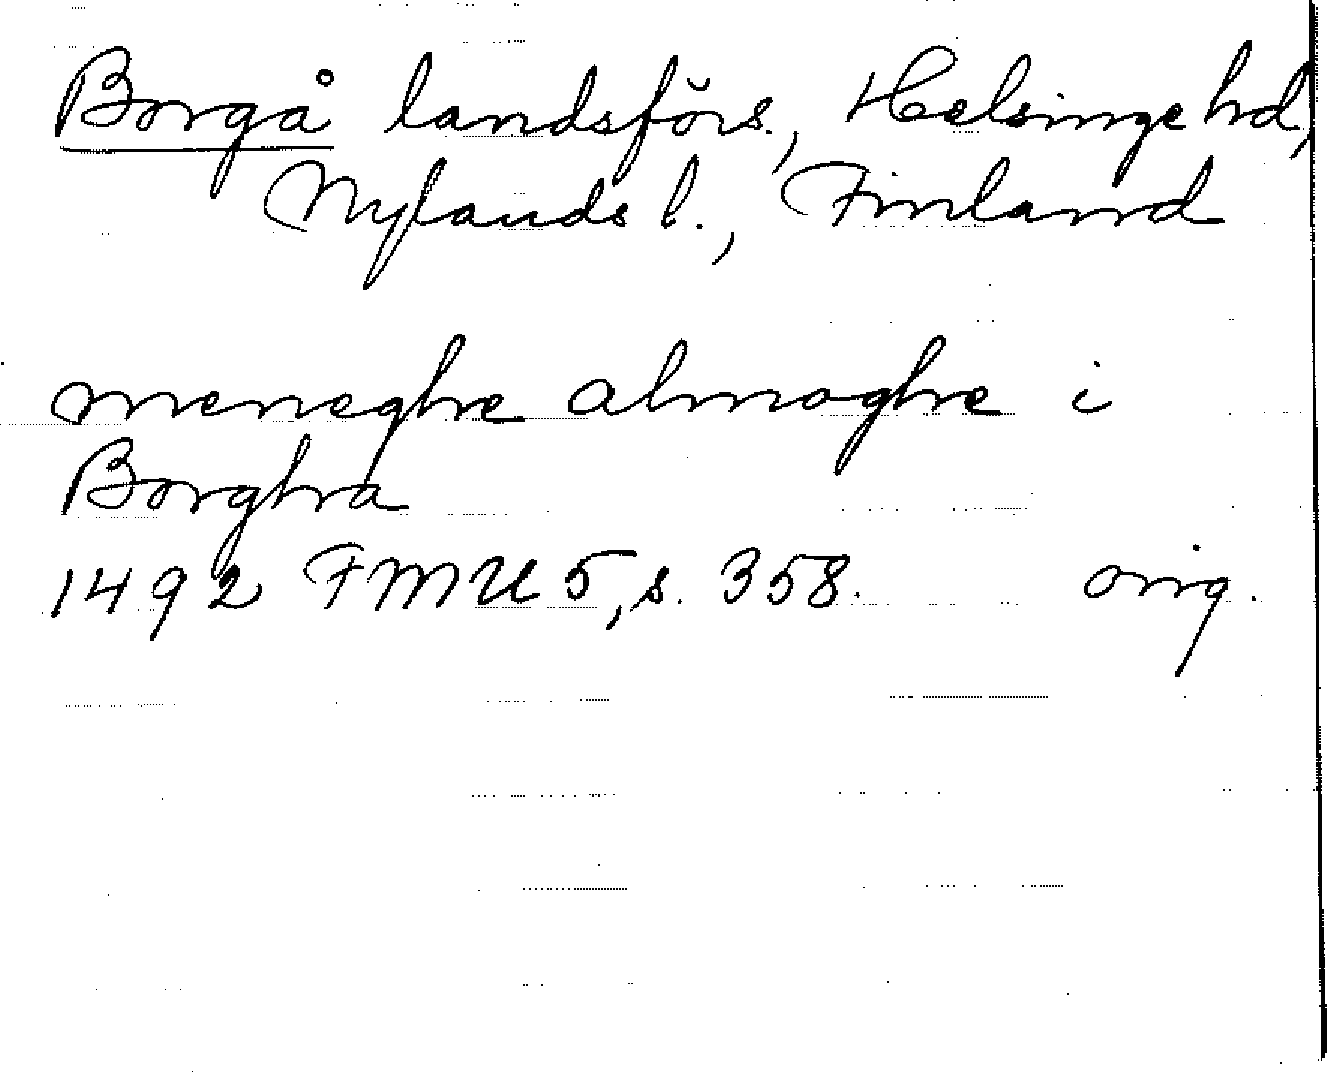 Borgå landsförs., Helsinge hd,
Nylands l., Finland
meneghe almoghe i
Borgha
1492 FMU 5, s. 358. orig.